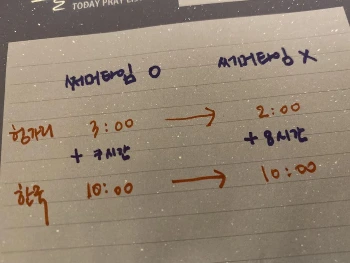 TODAY PRAY LIS
써머타임 O 써머타임 X
헝가리 3:00 → 2:00
+ 7시간 + 8시간
한국 10:00 → 10:00